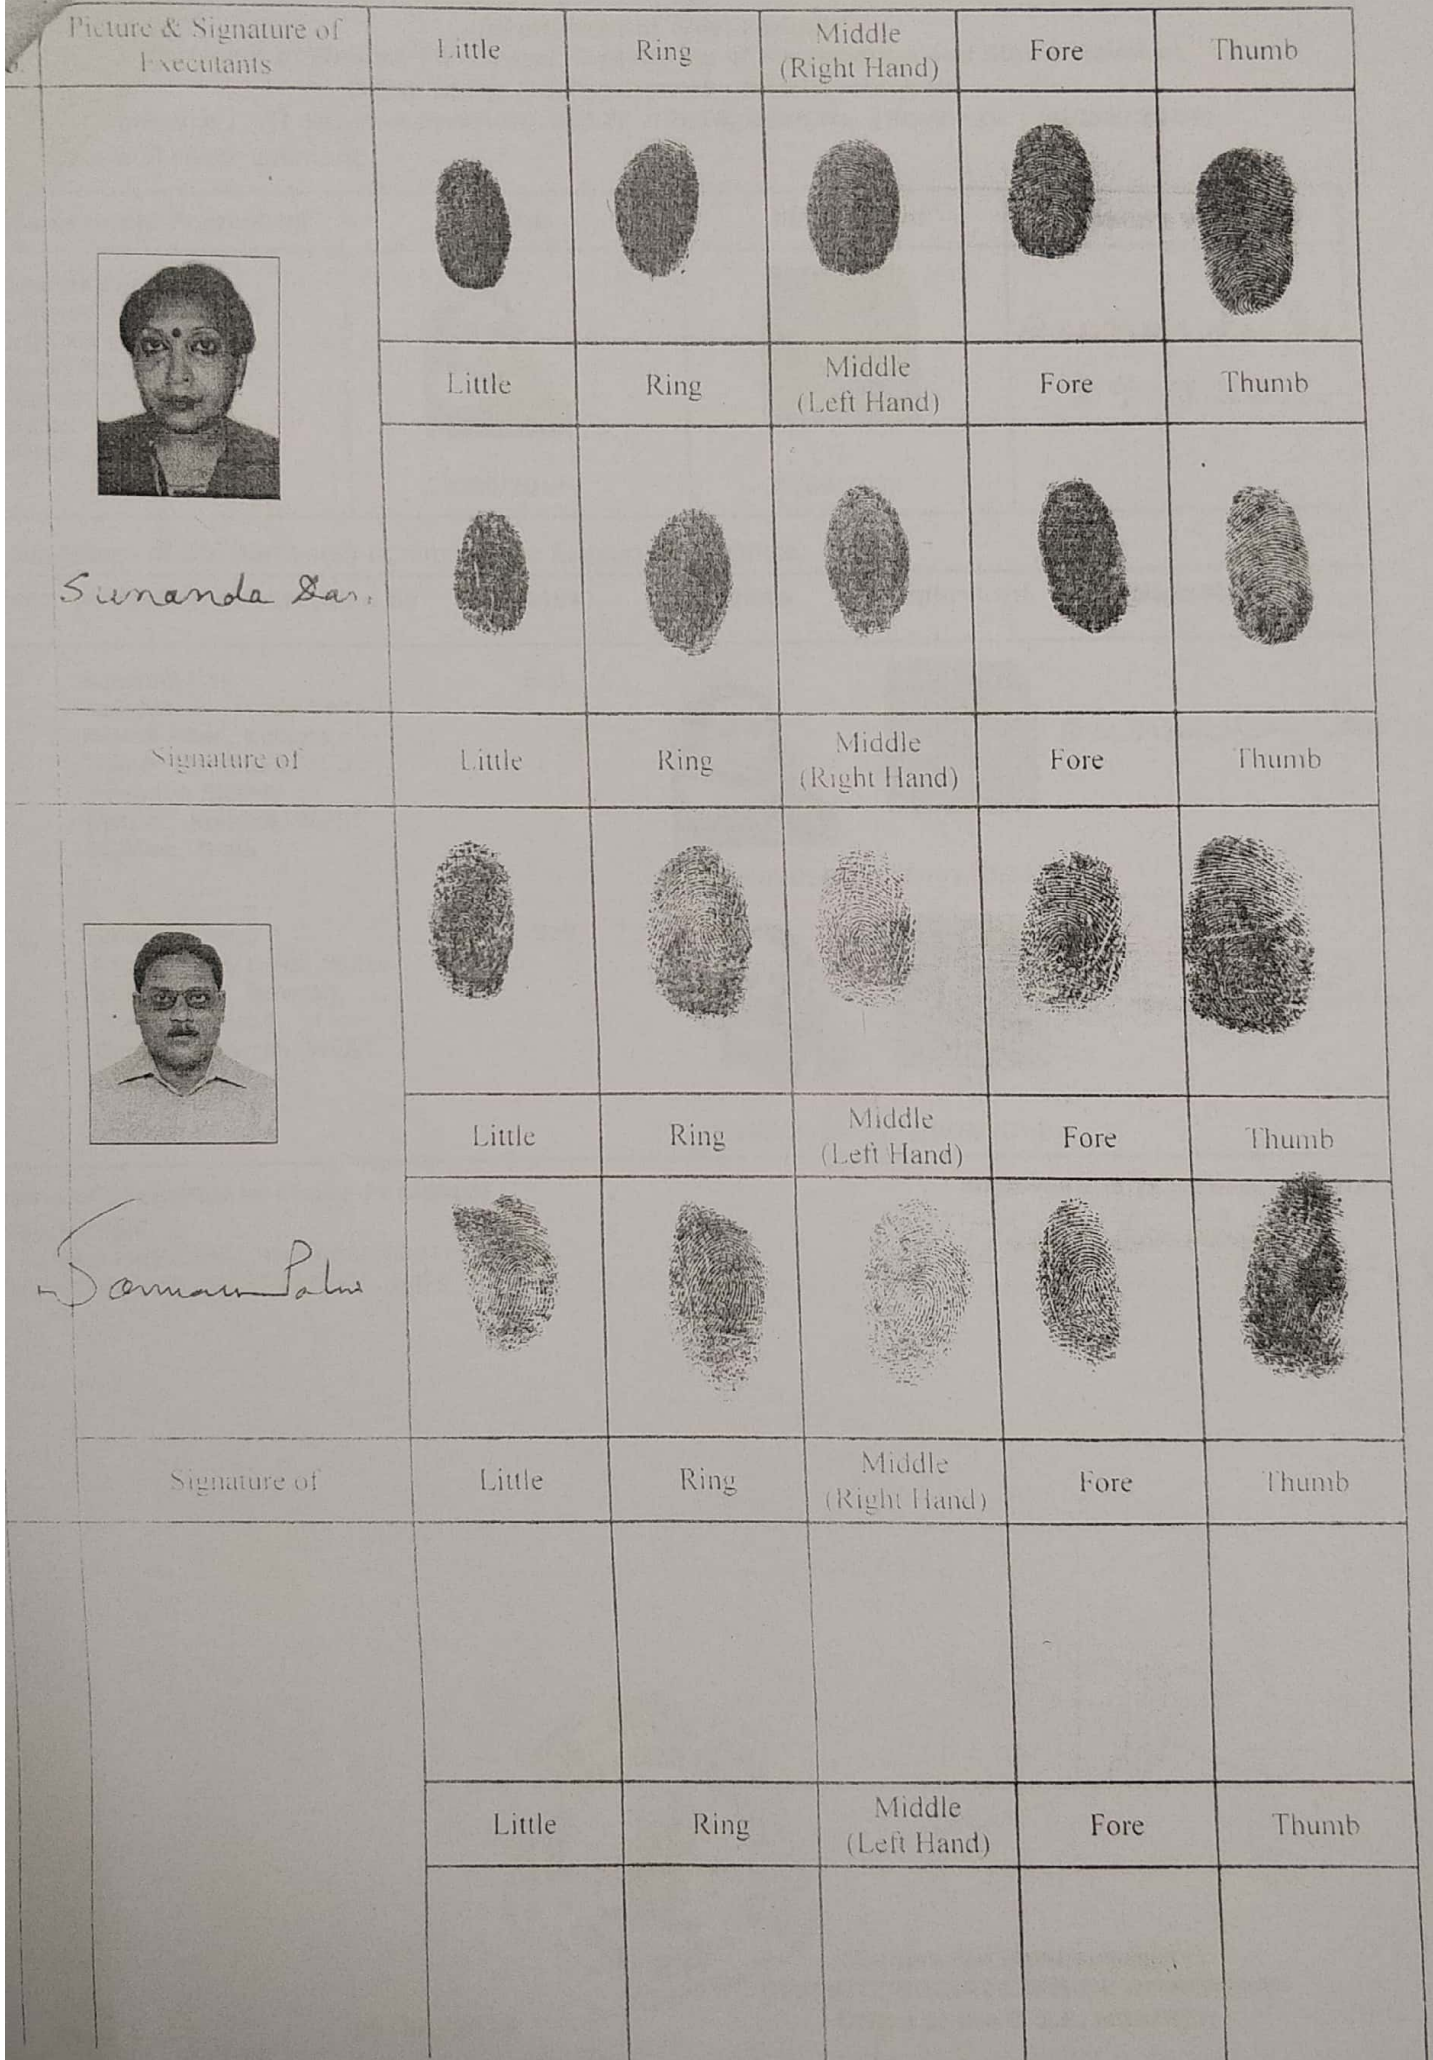 Picture & Signature of Executants
Little
Ring
Middle (Right Hand)
Fore
Thumb
Little
Ring
Middle (Left Hand)
Fore
Thumb
Sunanda Das.
Signature of
Little
Ring
Middle (Right Hand)
Fore
Thumb
Little
Ring
Middle (Left Hand)
Fore
Thumb
Signature of
Little
Ring
Middle (Right Hand)
Fore
Thumb
Little
Ring
Middle (Left Hand)
Fore
Thumb